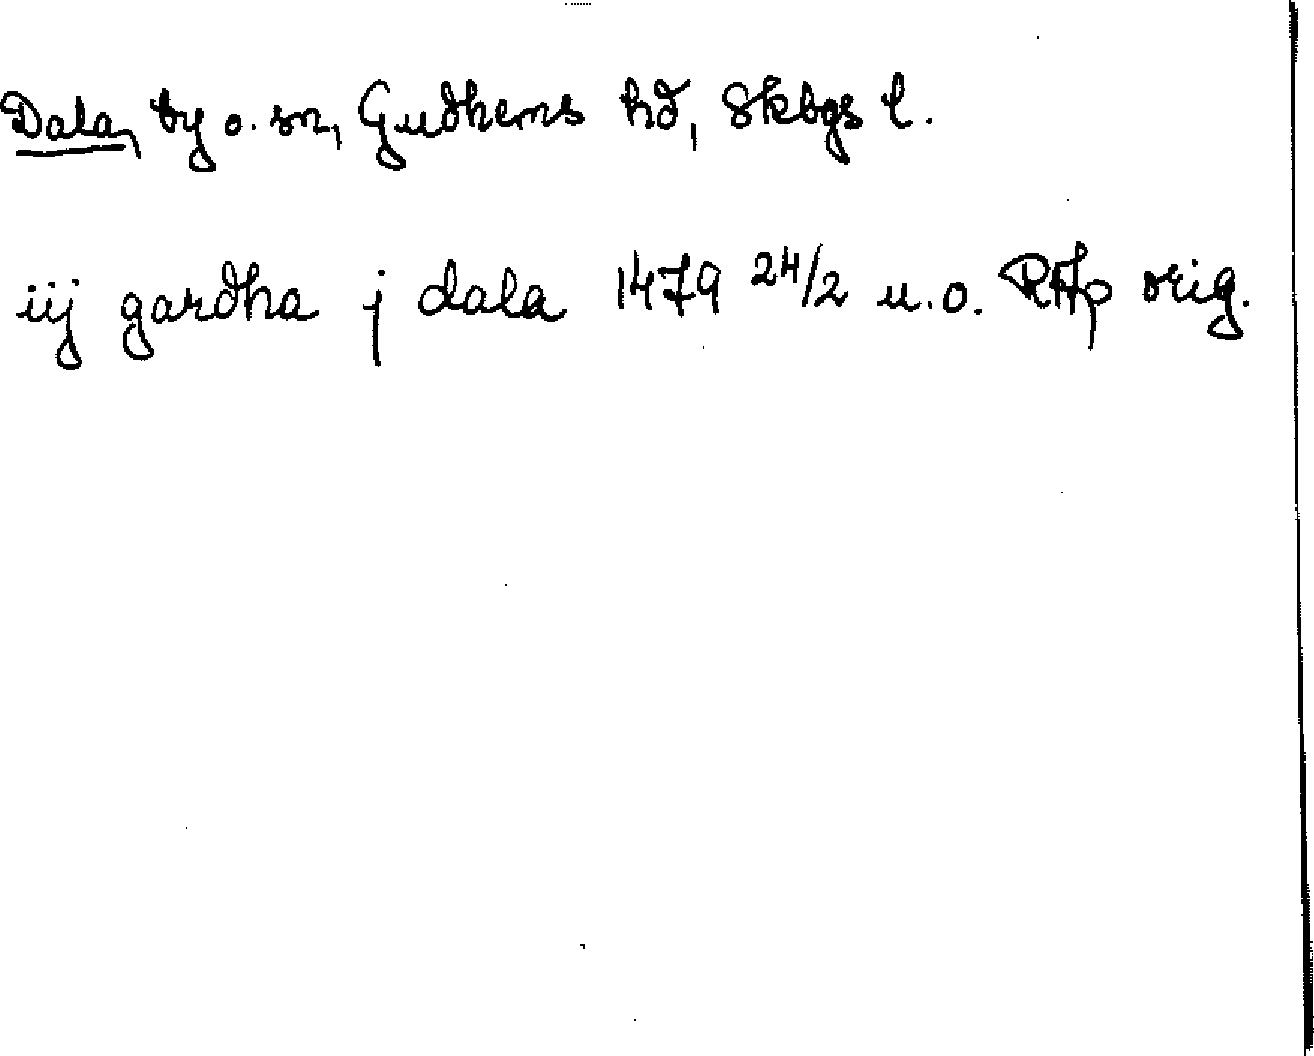 Dala, by o. sn, Gudhems hd, Skbgs l.
iij gardha j dala 1479 24/2 u.o. RAp orig.